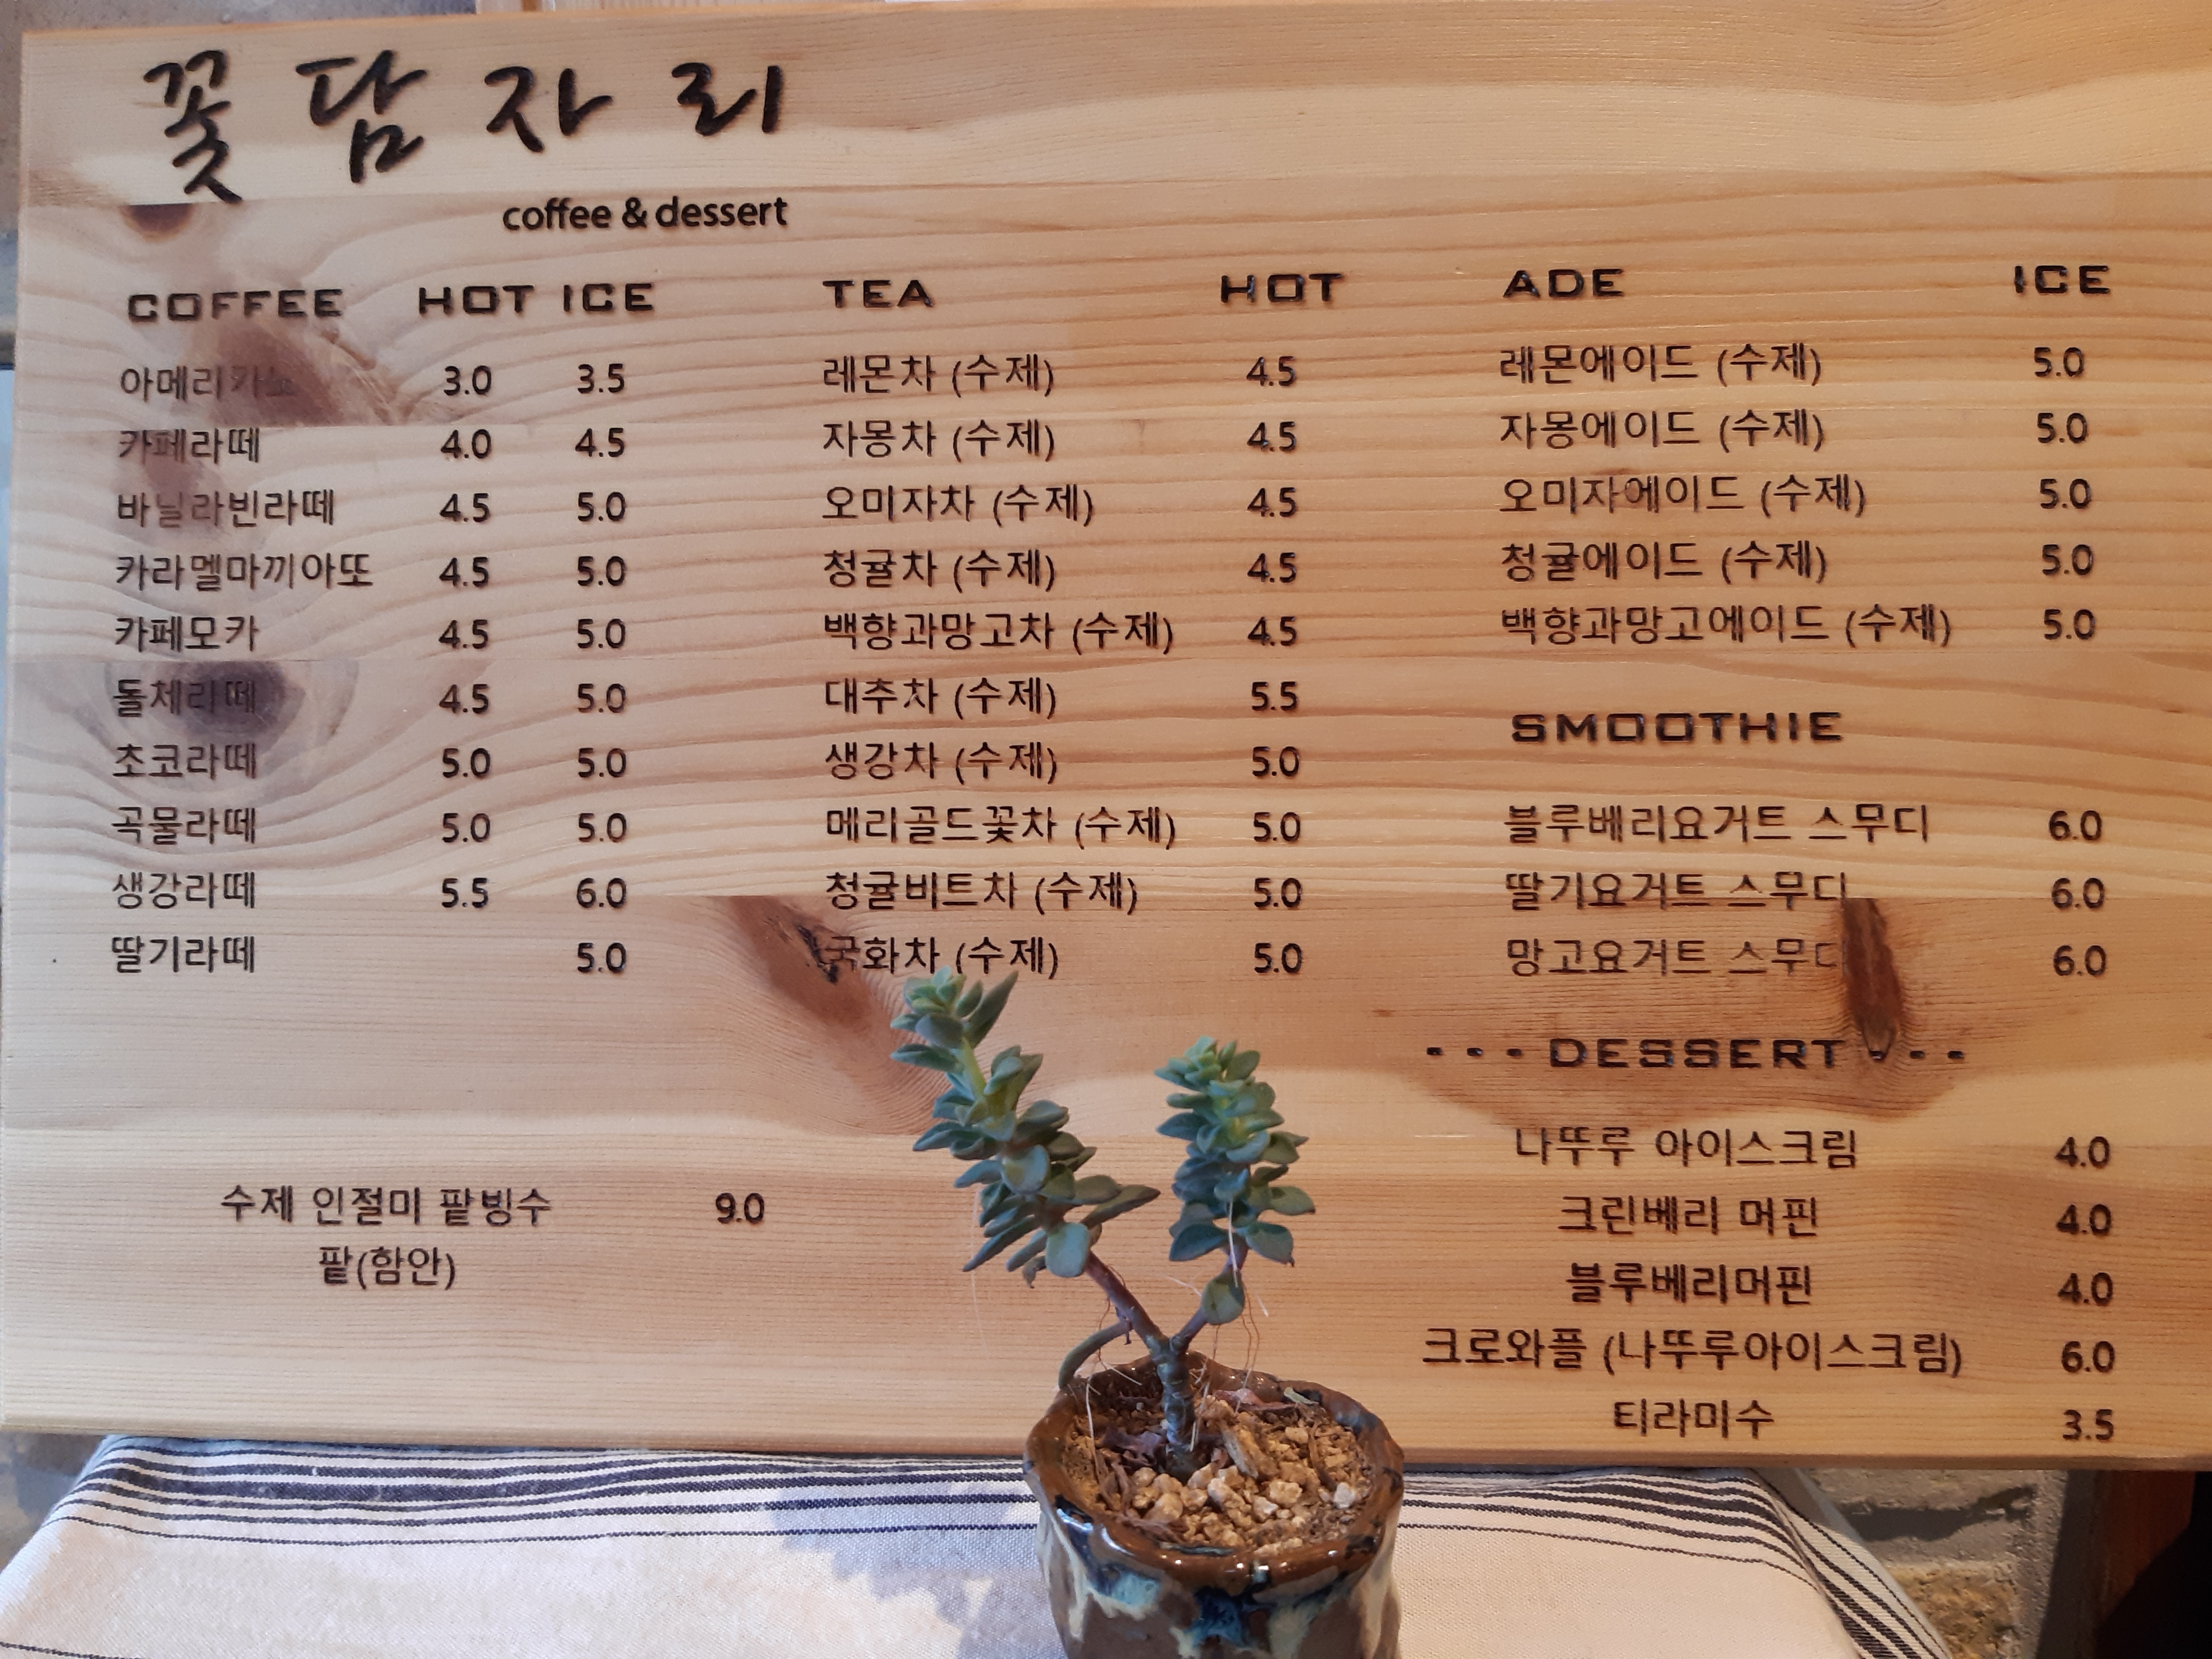 꽃담자리
coffee & dessert
COFFEE HOT ICE
아메리카노 3.0 3.5
카페라떼 4.0 4.5
바닐라빈라떼 4.5 5.0
카라멜마끼아또 4.5 5.0
카페모카 4.5 5.0
돌체리떼 4.5 5.0
초코라떼 5.0 5.0
곡물라떼 5.0 5.0
생강라떼 5.5 6.0
딸기라떼 5.0
수제 인절미 팥빙수 9.0
팥(함안)
TEA HOT
레몬차 (수제) 4.5
자몽차 (수제) 4.5
오미자차 (수제) 4.5
청귤차 (수제) 4.5
백향과망고차 (수제) 4.5
대추차 (수제) 5.5
생강차 (수제) 5.0
메리골드꽃차 (수제) 5.0
청귤비트차 (수제) 5.0
국화차 (수제) 5.0
ADE ICE
레몬에이드 (수제) 5.0
자몽에이드 (수제) 5.0
오미자에이드 (수제) 5.0
청귤에이드 (수제) 5.0
백향과망고에이드 (수제) 5.0
SMOOTHIE
블루베리요거트 스무디 6.0
딸기요거트 스무디 6.0
망고요거트 스무디 6.0
---DESSERT---
나뚜루 아이스크림 4.0
크린베리 머핀 4.0
블루베리머핀 4.0
크로와플 (나뚜루아이스크림) 6.0
티라미수 3.5